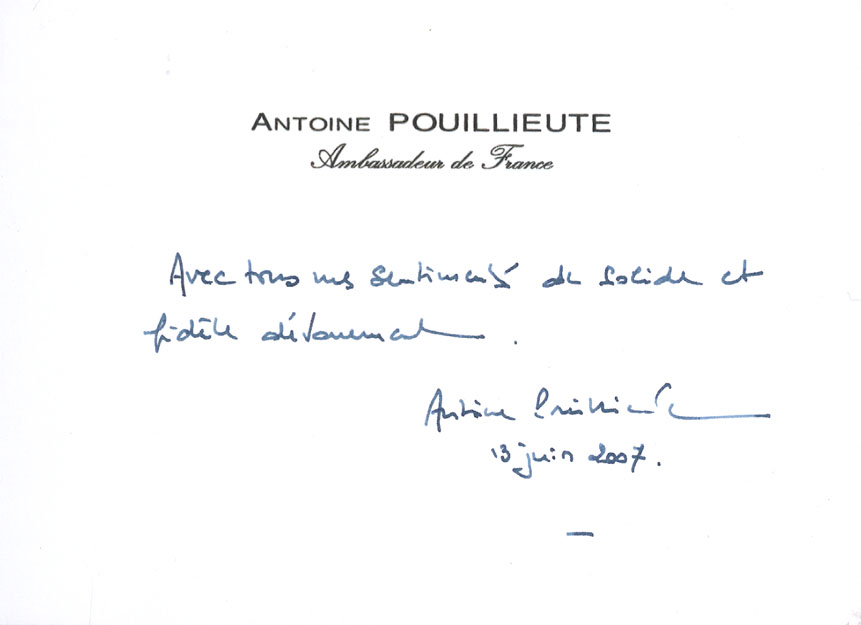 ANTOINE POUILLIEUTE
Ambassadeur de France
Avec tous mes sentiments de solide et
fidèle dévouement.
Antoine Pouillieute
13 juin 2007.